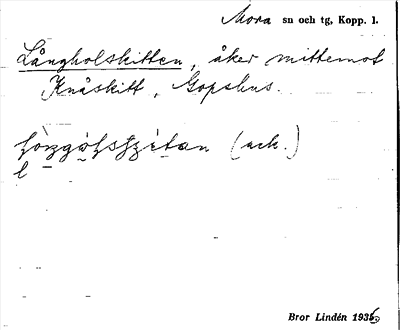 Mora sn och tg, Kopp. l.
Långholskitten, åker mittemot
Knåskitt, Gopshus.
(ack.)
l
Bror Lindén 1936